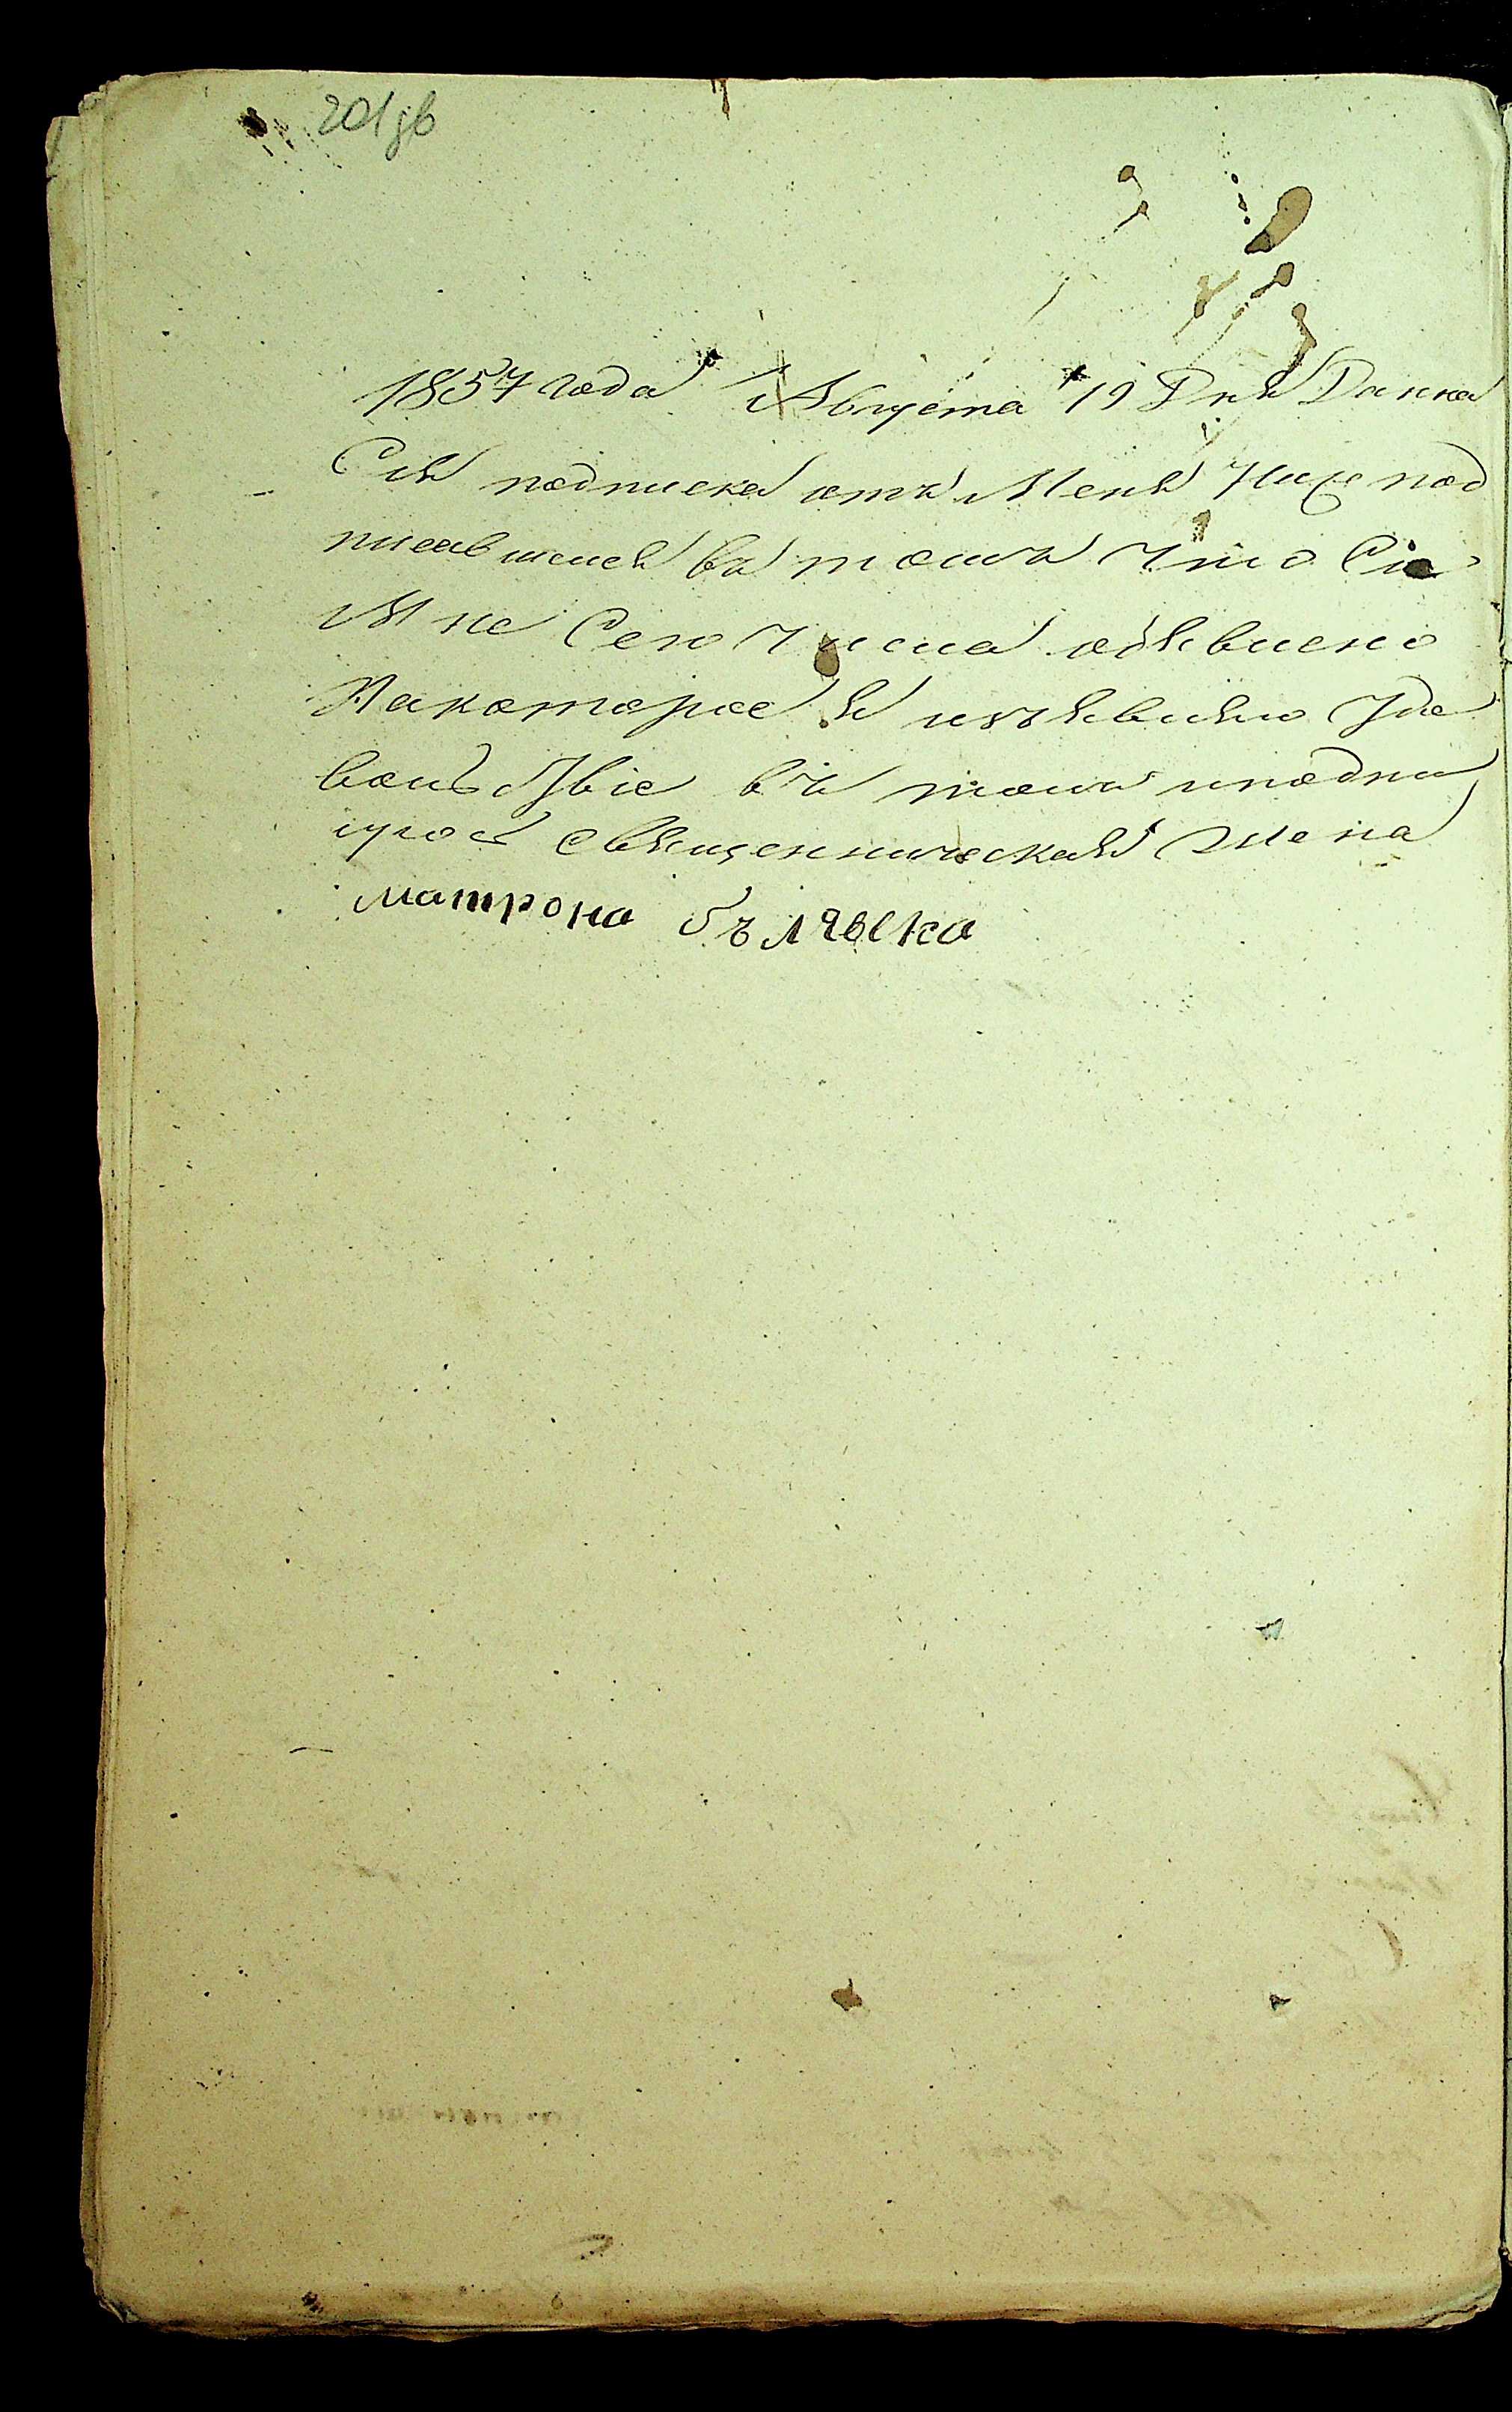 201 зв
1857 года Августа 19 Дня Данна
Сия подписка отъ Меня Ниже под
писавшися въ томъ что Сіе
Мне Сего числа объявлено
Накоторое я изъявляю Удо
вольствіе въ томъ и подпи
суюсь священническая жена
матрона